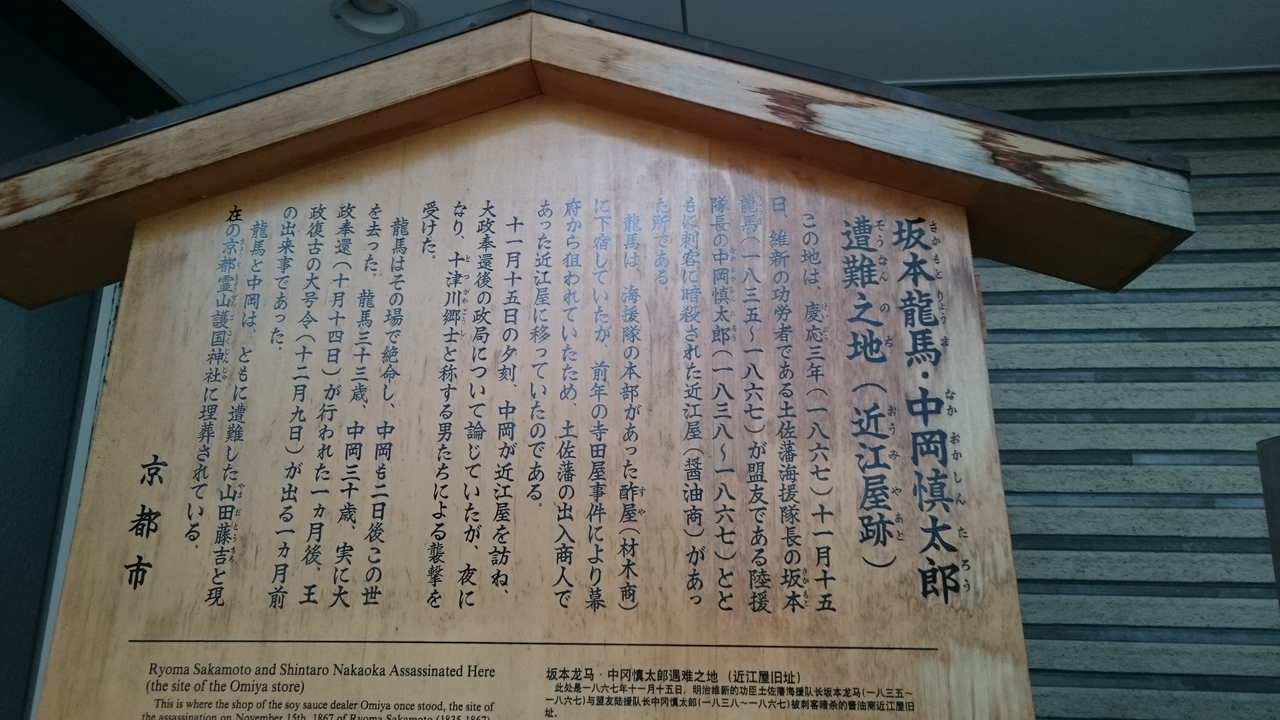 坂本龍馬・中岡慎太郎
遭難之地（近江屋跡）
この地は、慶応三年（一八六七）十一月十五
日、維新の功労者である土佐藩海援隊長の坂本
龍馬（一八三五〜一八六七）が盟友である陸援
隊長の中岡慎太郎（一八三八〜一八六七）とと
もに刺客に暗殺された近江屋（醤油商）があっ
た所である。
龍馬は、海援隊の本部があった酢屋（材木商）
に下宿していたが、前年の寺田屋事件により幕
府から狙われていたため、土佐藩の出入商人で
あった近江屋に移っていたのである。
十一月十五日の夕刻、中岡が近江屋を訪ね、
大政奉還後の政局について論じていたが、夜に
なり、十津川郷士と称する男たちによる襲撃を
受けた。
龍馬はその場で絶命し、中岡も二日後この世
を去った。龍馬三十三歳、中岡三十歳、実に大
政奉還（十月十四日）が行われた一カ月後、王
政復古の大号令（十二月九日）が出る一カ月前
の出来事であった。
龍馬と中岡は、ともに遭難した山田藤吉と現
在の京都霊山護国神社に埋葬されている。
京都市
Ryoma Sakamoto and Shintaro Nakaoka Assassinated Here
(the site of the Omiya store)
This is where the shop of the soy sauce dealer Omiya once stood, the site of
the assassination on November 15th, 1867 of Ryoma Sakamoto (1835-1867)
坂本龙马·中冈慎太郎遇难之地（近江屋旧址）
此处是一八六七年十一月十五日，明治维新的功臣土佐藩海援队长坂本龙马（一八三五～
一八六七）与盟友陆援队长中冈慎太郎（一八三八～一八六七）被刺客暗杀的酱油商近江屋旧
址。